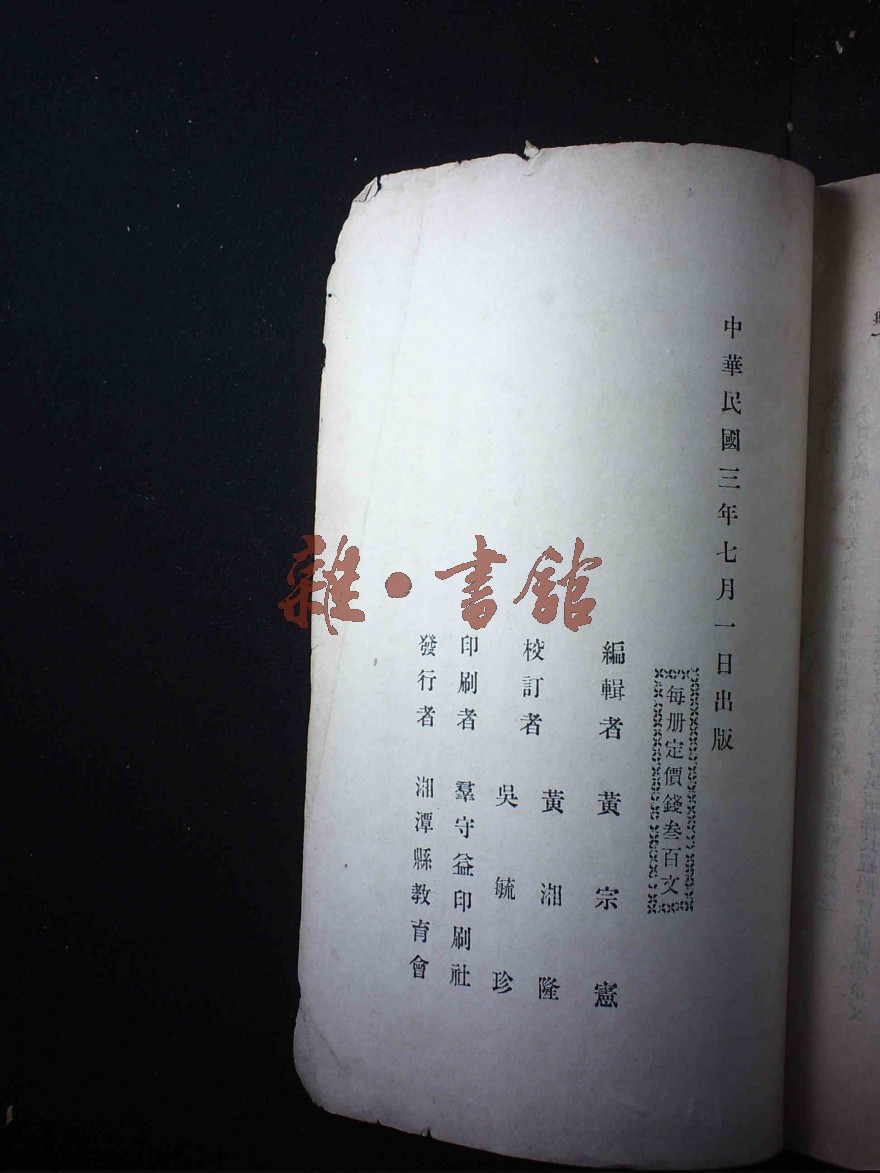 中華民國三年七月一日出版
每册定價錢叁百文
編輯者 黃宗憲
校訂者 黃湘隆
吳毓珍
印刷者 羣守益印刷社
發行者 湘潭縣教育會
雜·書館